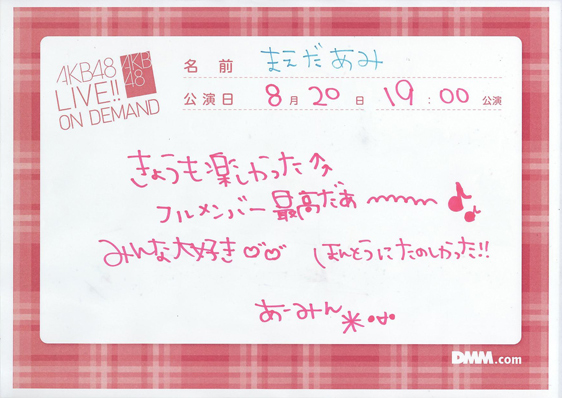 AKB48
LIVE!!
ON DEMAND
AKB
48
名前 まえだあみ
公演日 8月20日 19:00公演
きょうも楽しかった↑↑
フルメンバー最高だぁ〰〰♪♪
みんな大好き♡♡ ほんとうにたのしかった!!
あーみん＊
DMM.com